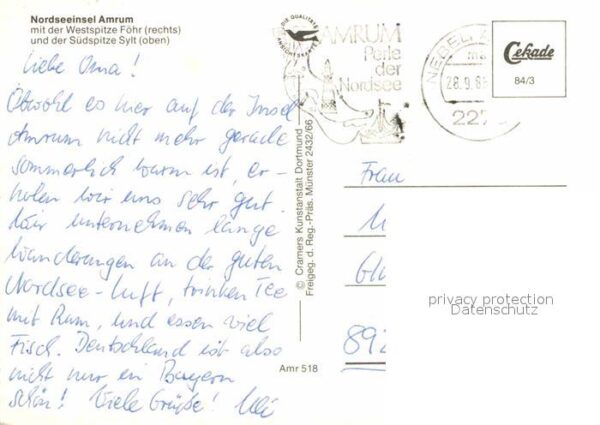 Nordseeinsel Amrum
mit der Westspitze Föhr (rechts)
und der Südspitze Sylt (oben)
Liebe Oma!
Obwohl es hier auf der Insel
Amrum nicht mehr gerade
sommerlich warm ist, er-
holen wir uns sehr gut.
Wir unternehmen lange
Wanderungen an der guten
Nordsee-Luft, trinken Tee
mit Rum, und essen viel
Fisch. Deutschland ist also
nicht nur in Bayern
schön! Viele Grüße! Uli
© Cramers Kunstanstalt Dortmund
Freigeg. d. Reg.-Präs. Münster 2432/66
Amr 518
DIE QUALITÄTS
ANSICHTSKARTE
AMRUM
Perle
der
Nordsee
NEBEL
28.9.8
227
Cekade
84/3
Frau
892
privacy protection
Datenschutz